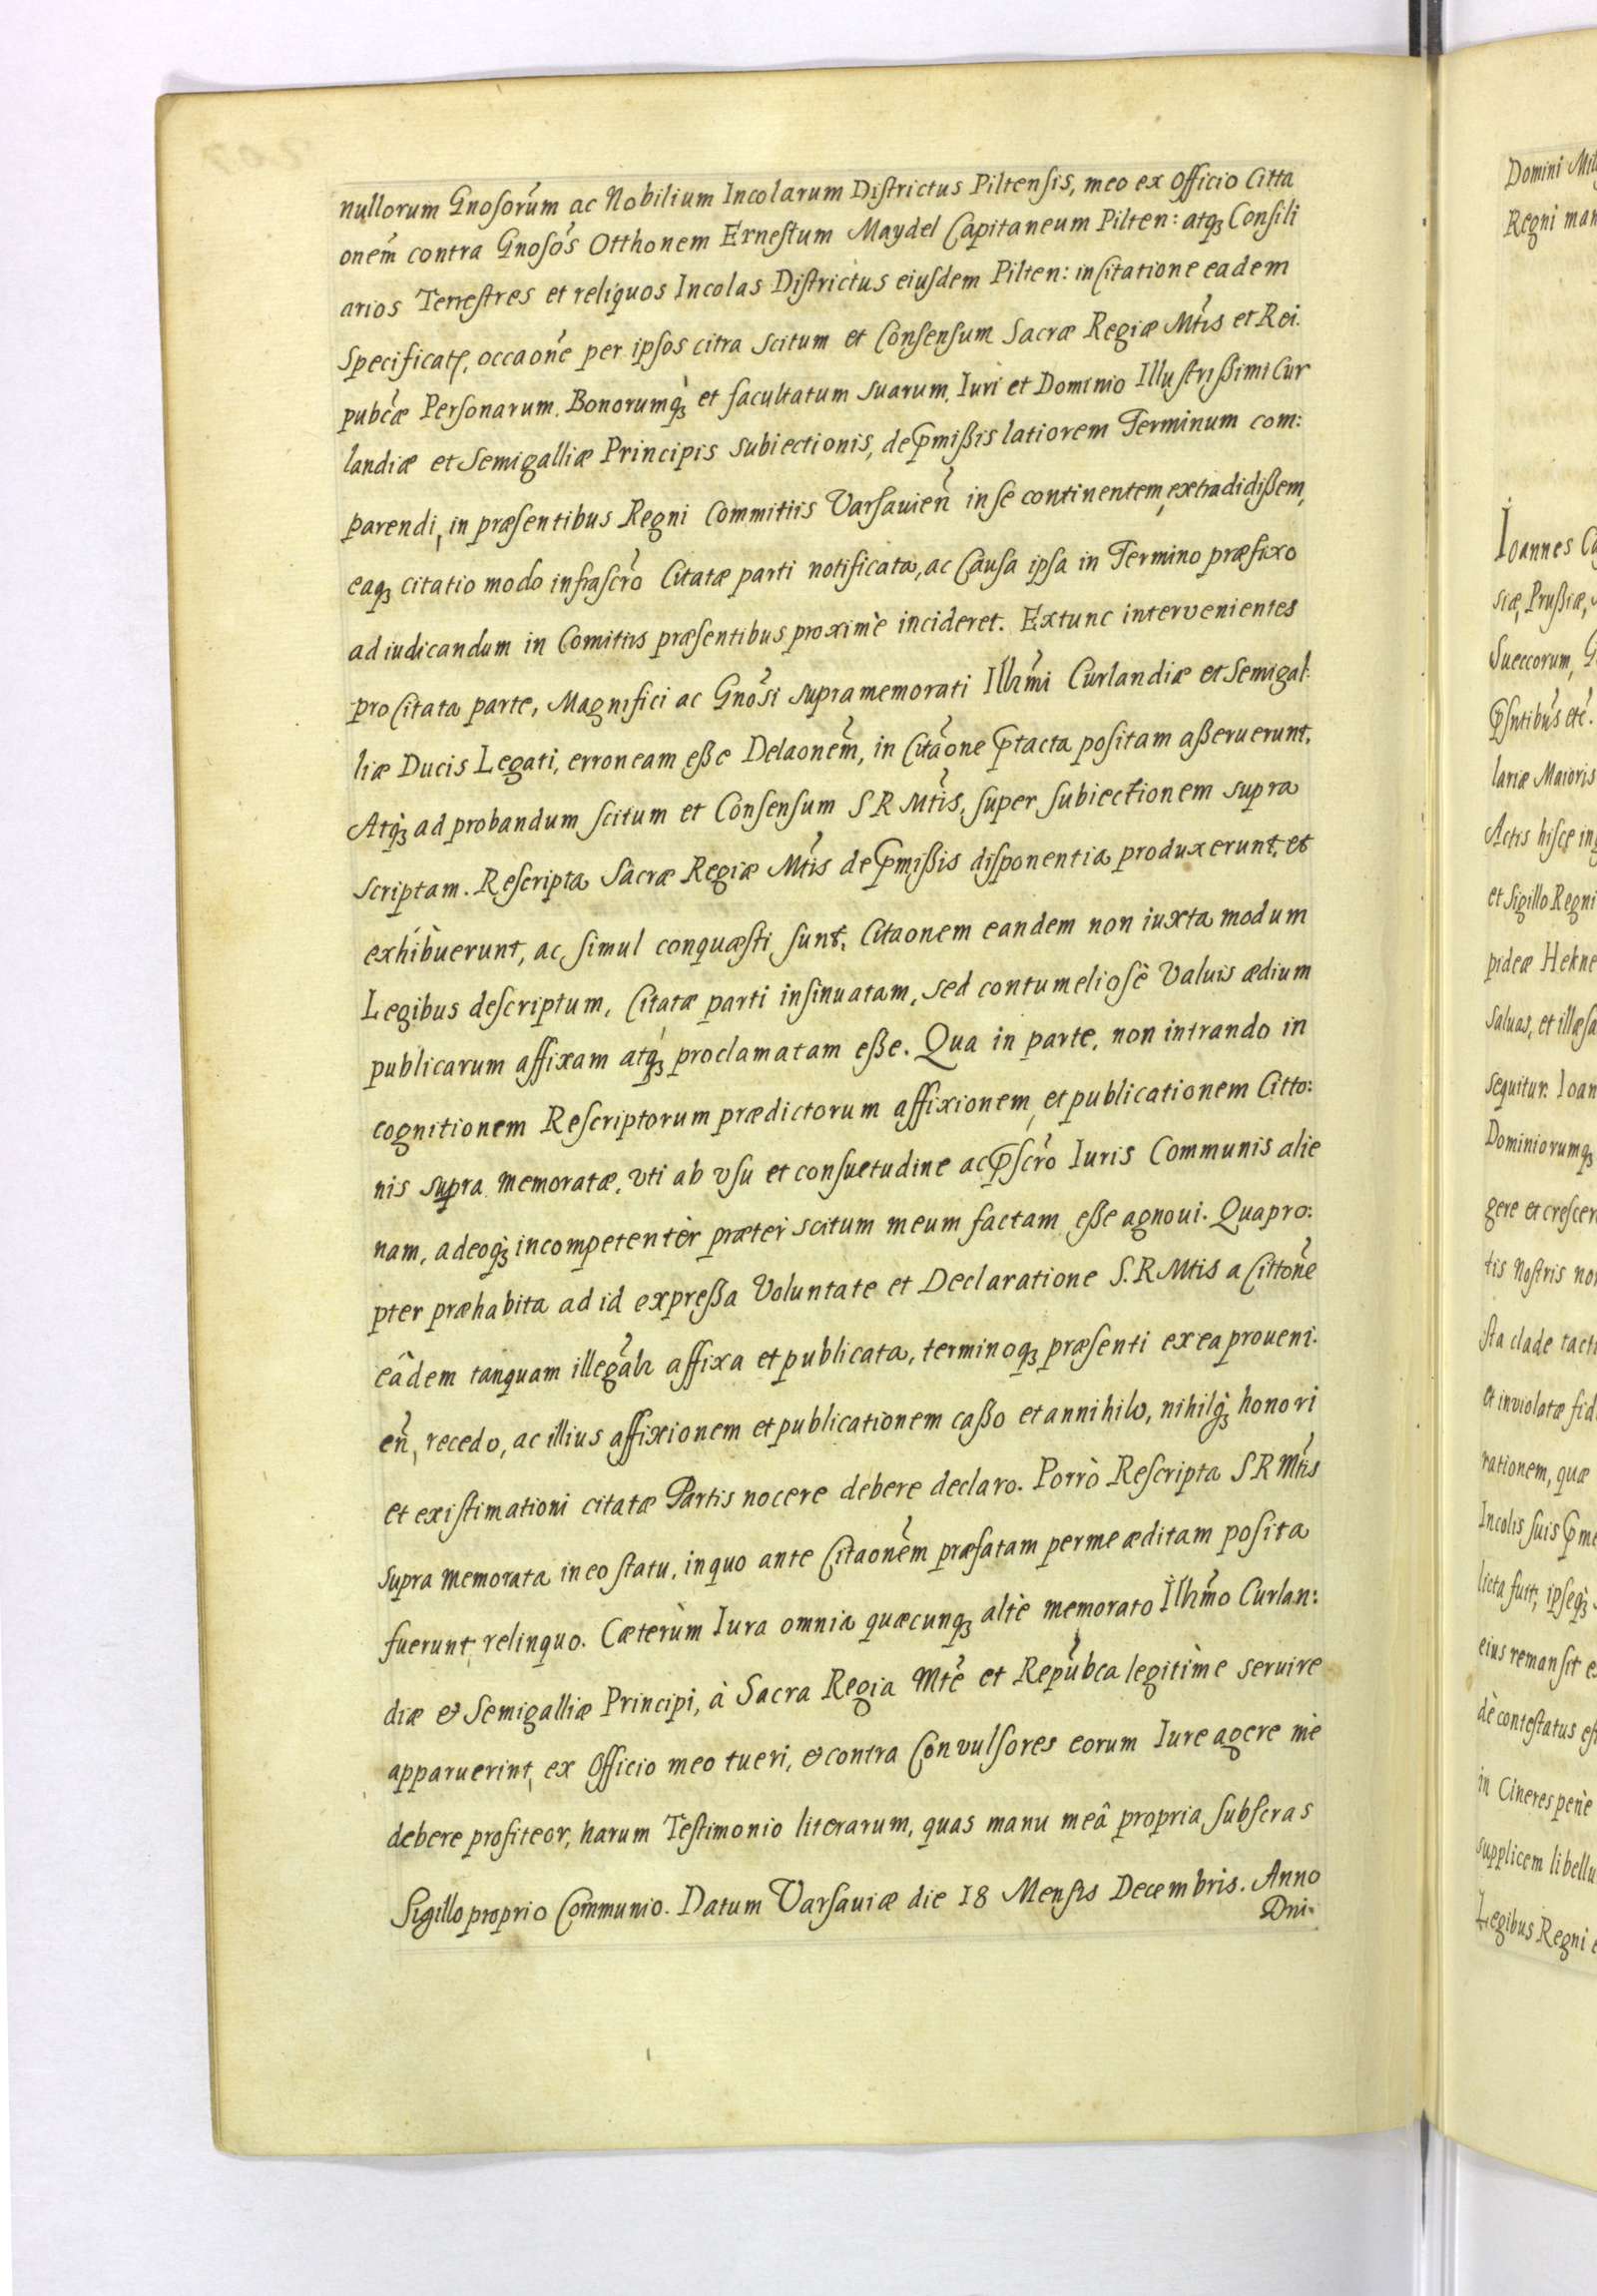 nullorum Gnosorum ac Nobilium Incolarum Districtus Piltensis, meo ex Officio Citta
onem contra Gnosos Otthonem Ernestum Maydel Capitaneum Pilten: atqꝫ Consili
arios Terrestres et reliquos Incolas Districtus eiusdem Pilten: in Citatione eadem
Specificatę, occaone per ipsos citra scitum et Consensum Sacræ Regiæ Mtis et Rei.
pubcæ Personarum. Bonorumqꝫ et facultatum suarum, Iuri et Dominio Illustrißimi Cur
landiæ et Semigalliæ Principis subiectionis, de p̃mißis latiorem Terminum com:
parendi, in præsentibus Regni Commitiis Varsavien in se continentem, extradidißem,
eaqꝫ citatio modo infrascro Citatæ parti notificata, ac Causa ipsa in Termino præfixo
ad iudicandum in Comitiis præsentibus proximè incideret. Extunc intervenientes
pro Citata parte, Magnifici ac Gnosi supramemorati Illmi Curlandiæ et Semigal:
liæ Ducis Legati, erroneam eße Delaonem, in Citaone p̃tacta positam aßeruerunt.
Atqꝫ ad probandum scitum et Consensum S R Mtis, super subiectionem supra
scriptam. Rescripta Sacræ Regiæ Mtis de p̃mißis disponentia produxerunt, et
exhibuerunt, ac simul conquæsti sunt, Citaonem eandem non iuxta modum
Legibus descriptum, Citatæ parti insinuatam, sed contumeliosè Valuis ædium
publicarum affixam atqꝫ proclamatam eße. Qua in parte, non intrando in
cognitionem Rescriptorum prædictorum affixionem, et publicationem Citto:
nis supra memoratæ, vti ab vsu et consuetudine ac p̃scro Iuris Communis alie
nam, adeoqꝫ incompetentèr præter scitum meum factam eße agnoui. Quapro:
pter præhabita ad id expreßa Voluntate et Declaratione S. R Mtis a Cittone
eâdem tanquam illegalr affixa et publicata, terminoqꝫ præsenti ex ea proueni.
en, recedo, ac illius affixionem et publicationem caßo et annihilo, nihilqꝫ honori
et existimationi citatæ Partis nocere debere declaro. Porrò Rescripta S R Mtis
supra memorata in eo statu, in quo ante Citaonem præfatam per me æditam posita
fuerunt, relinquo. Cæterùm Iura omnia quæcunqꝫ altè memorato Illmo Curlan:
diæ & Semigalliæ Principi, à Sacra Regia Mte et Repubca legitimè seruire
apparuerint, ex Officio meo tueri, & contra Convulsores eorum Iure agere me
debere profiteor, harum Testimonio literarum, quas manu meâ propria subscras
Sigillo proprio Communio. Datum Varsaviæ die 18 Mensis Decembris. Anno
Dni.
Domini
Regni man
Ioannes Ca
siæ, Prußiæ,
Sueccorum, G
p̃sntibus etc.
lariæ Maioris
Actis hisce in
et Sigillo Regni
pideæ Hekne
saluas, et illæsa
sequitur. Ioan
Dominiorumqꝫ
gere et crescer
tis Nostris no
sta clade tact
et inviolatæ fid
rationem, quæ
Incolis suis p̃me
licta fuit, ipseqꝫ
eius remansit e
dè contestatus es
in Cineres penè
supplicem libellu
Legibus Regni e